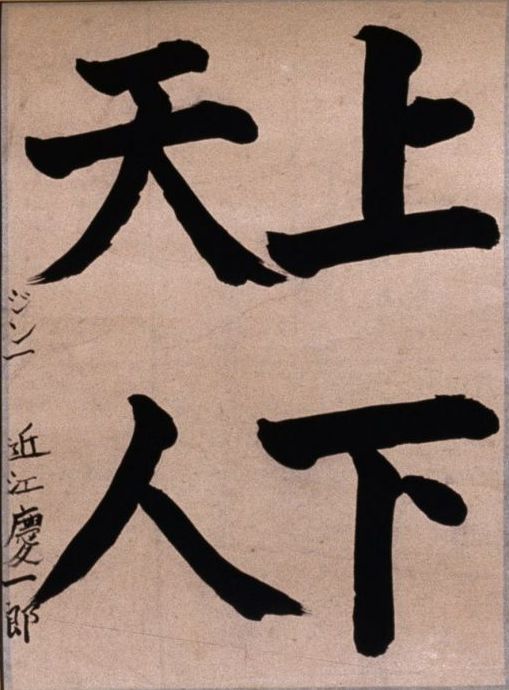 上下
天人
ジン一 近江慶一郎